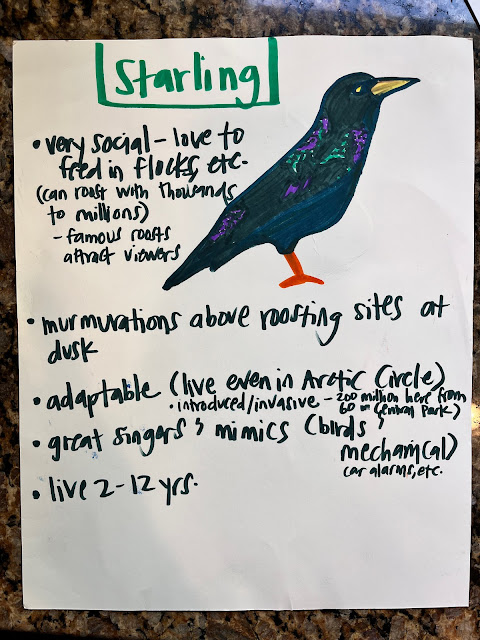 Starling
• very social - love to
feed in flocks, etc.
(can roost with thousands
to millions)
- famous roosts
attract viewers
• murmurations above roosting sites at
dusk
• adaptable (live even in Arctic Circle)
• introduced/invasive - 200 million here from
60 in Central Park)
• great singers & mimics (birds &
mechanical)
car alarms, etc.
• live 2-12 yrs.